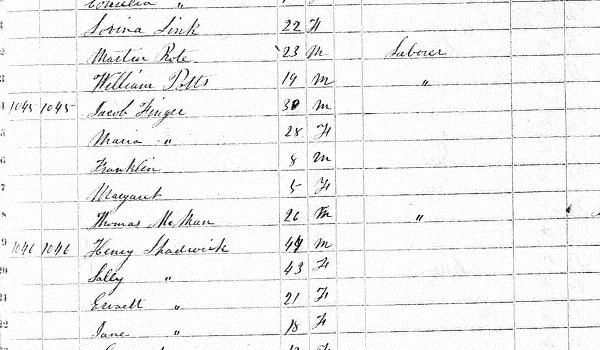 Cornelia "
Lovina Link 22 F
2 Martin Rote 23 M Laborer
3 William Potts 19 M "
4 1045 1045 Jacob Finger 30 M
5 Maria " 28 F
6 Franklin 8 M
7 Margaret 5 F
8 Thomas McMan 26 M "
9 1046 1046 Henry Shadwick 44 M
20 Sally " 43 F
21 21 F
22 Jane " 18 F